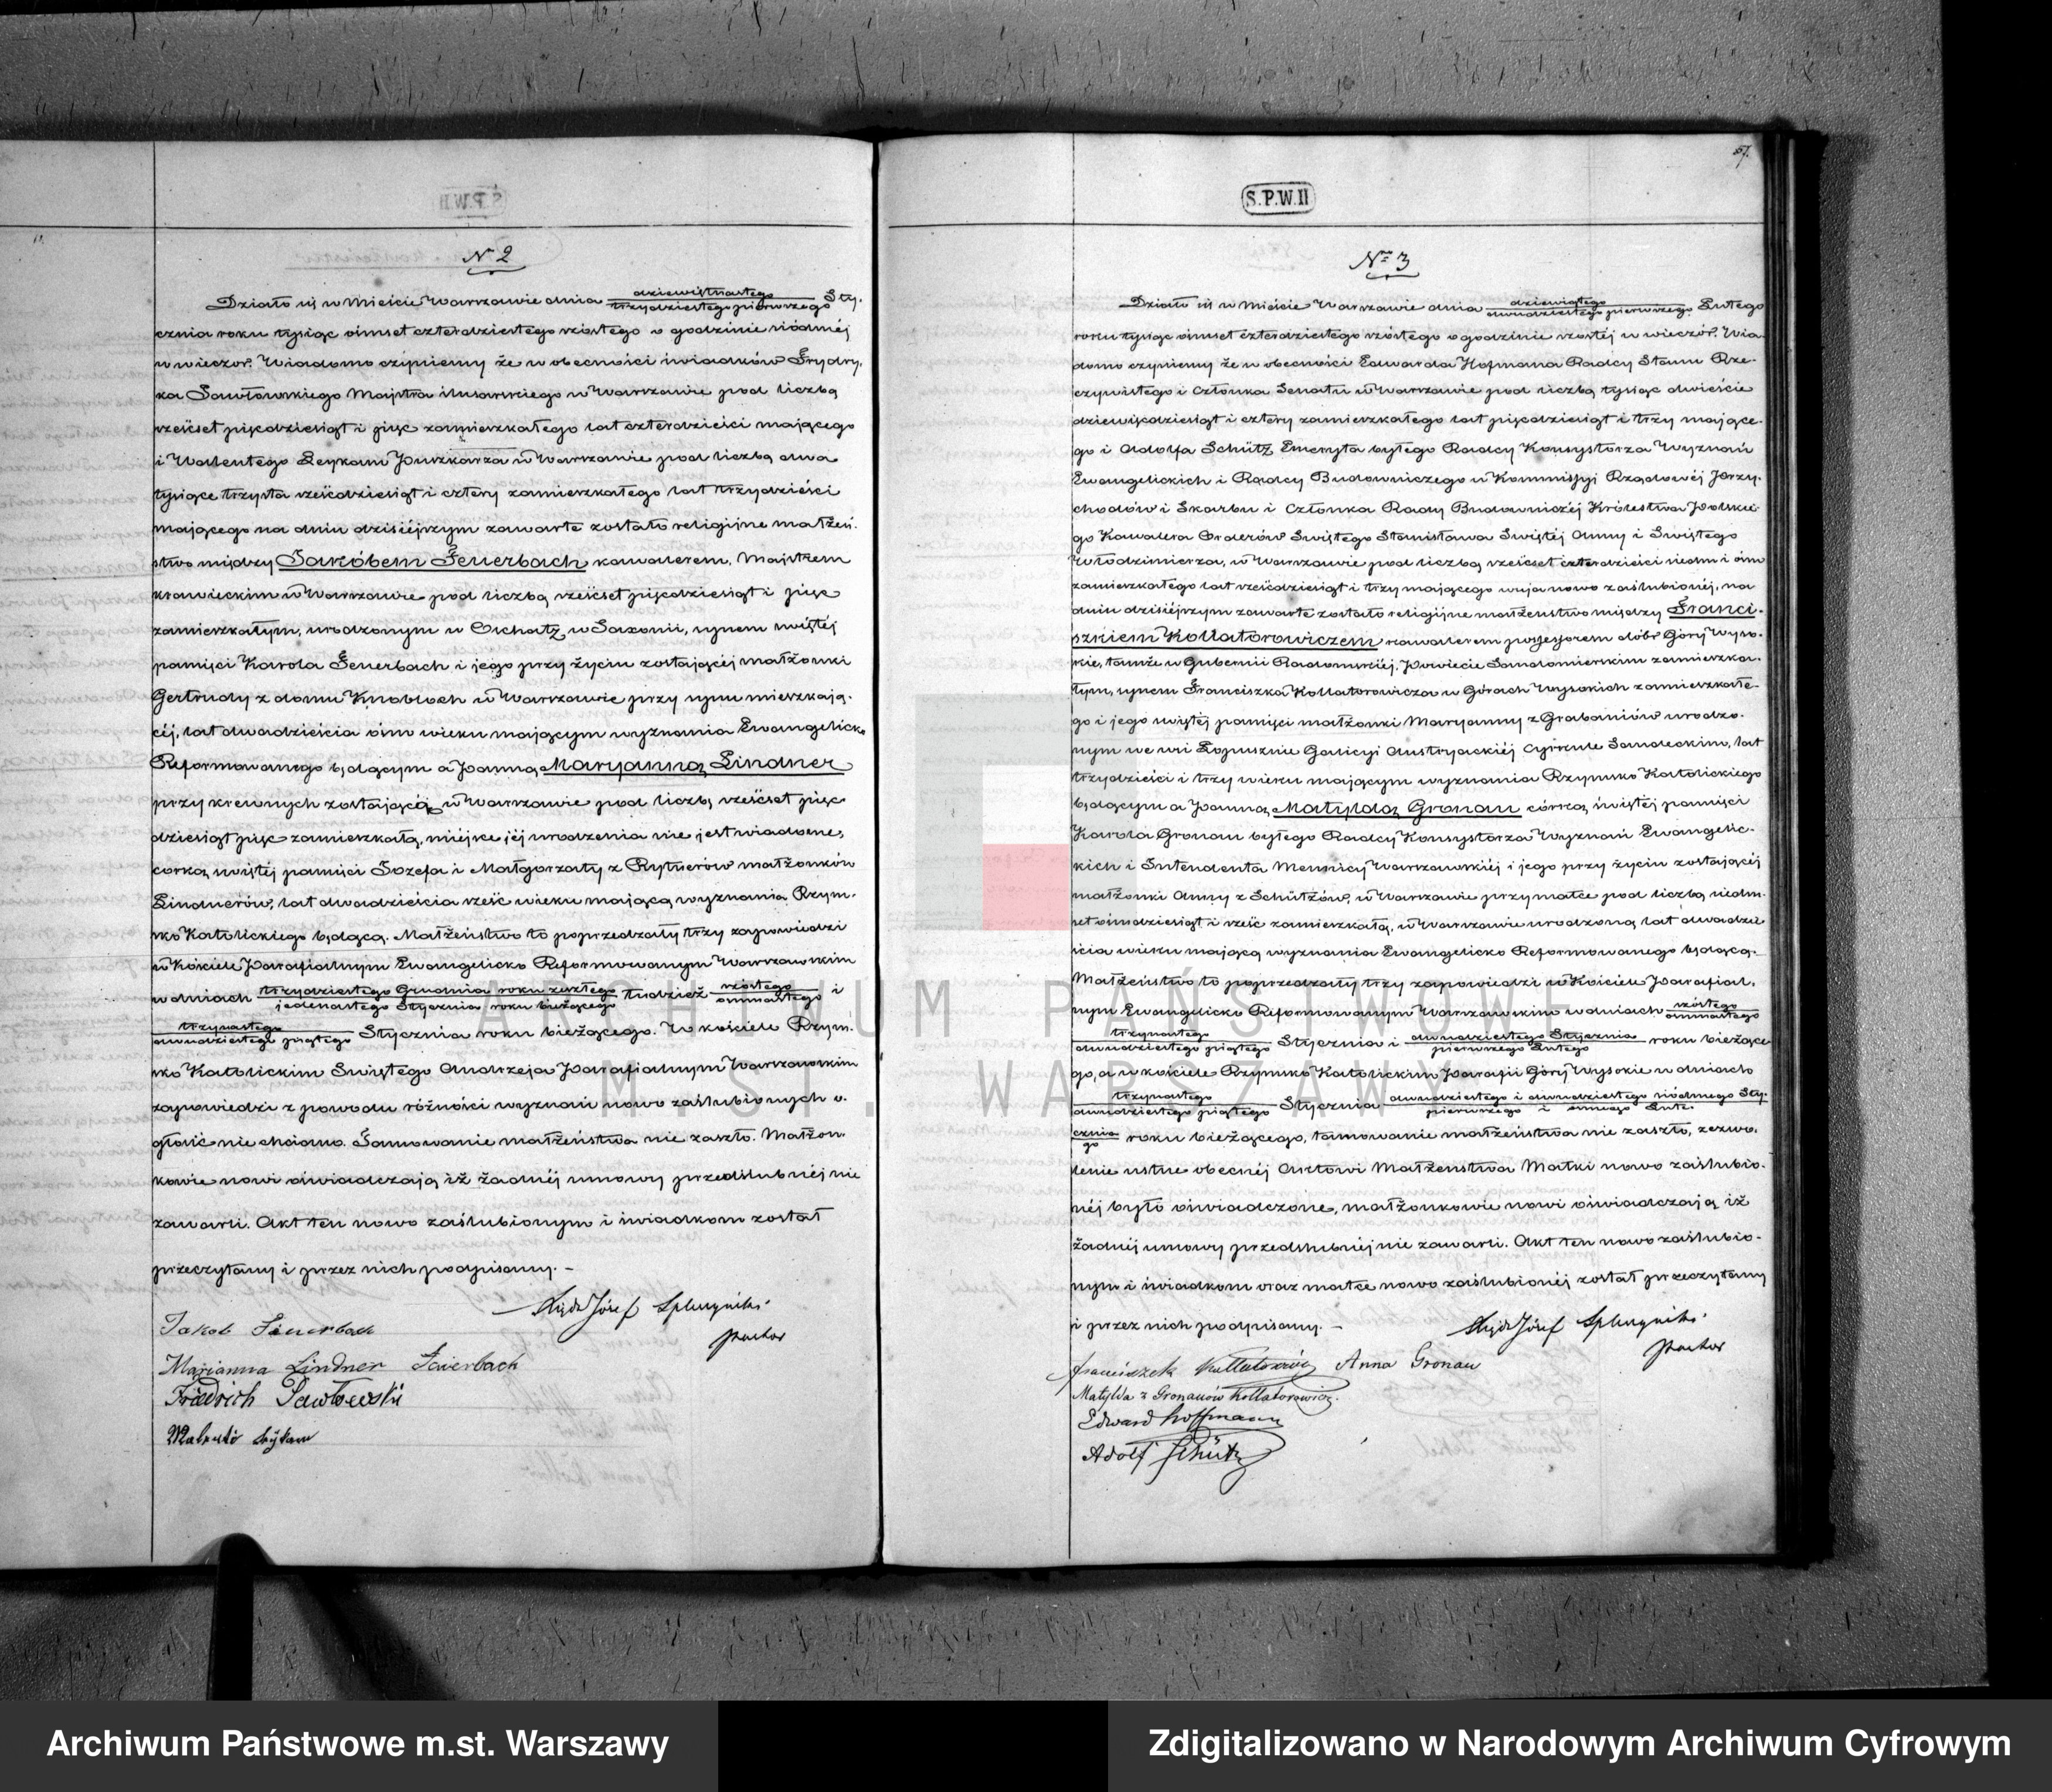 57.
S.P.W.II
N 2
Działo się w Mieście Warszawie dnia dziewiętnastego / trzydziestego pierwszego Sty-
cznia roku tysiąc ośmset czterdziestego szóstego o godzinie siódméj
w wieczór. Wiadomo czyniemy że w obecności świadków Frydry-
ka Sawłowskiego Majstra ślusarskiego w Warszawie pod liczbą
sześćset pięćdziesiąt i pięć zamieszkałego lat czterdzieści mającego
i Walentego Leykam Puszkarza w Warszawie pod liczbą dwa
tysiące trzysta sześćdziesiąt i cztery zamieszkałego lat trzydzieści
mającego na dniu dzisiéjszym zawarte zostało religijne małżeń-
stwo między Jakóbem Feuerbach kawalerem, Majstrem
krawieckim w Warszawie pod liczbą sześćset pięćdziesiąt i pięć
zamieszkałym, urodzonym w Oschatz w Saxonii, synem świętéj
pamięci Karola Feuerbach i jego przy życiu zostającéj małżonki
Gertrudy z domu Knobloch w Warszawie przy synu mieszkają-
céj, lat dwadzieścia óśm wieku mającym wyznania Ewangelicko
Reformowanego będącym a Panną Maryanną Lindner
przy krewnych zostającą w Warszawie pod liczbą sześćset pięć-
dziesiąt pięć zamieszkałą, miéjsce jéj urodzenia nie jest wiadome,
córką świętéj pamięci Józefa i Małgorzaty z Rytnerów małżonków
Lindnerów, lat dwadzieścia sześć wieku mającą wyznania Rzym-
sko Katolickiego będącą. Małżeństwo to poprzedzały trzy zapowiedzi
w Kościele Parafialnym Ewangelicko Reformowanym Warszawskim
w dniach trzydziestego Grudnia roku zeszłego / jedenastego Stycznia roku bieżącego tudzież szóstego / ośmnastego i
trzynastego / dwudziestego piątego Stycznia roku bieżącego. W kościele Rzym-
sko Katolickim Świętego Andrzeja Parafialnym Warszawskim
zapowiedzi z powodu różności wyznań nowo zaślubionych o-
głosić nie chciano. Tamowanie małżeństwa nie zaszło. Małżon-
kowie nowi oświadczają iż żadnéj umowy przedślubnéj nie
zawarli. Akt ten nowo zaślubionym i świadkom został
przeczytany i przez nich podpisany. –
Xiądz Józef Spleszyński
Pastor
Jakob Feuerbach
Marianna Lindner Feierbach
Friedrich Sawłowski
Walenti Leykam
Nro 3
Działo się w Mieście Warszawie dnia dziewiątego / dwudziestego pierwszego Lutego
roku tysiąc ośmset czterdziestego szóstego o godzinie szóstéj w wieczór. Wia-
domo czyniemy że w obecności Edwarda Hofmana Radcy Stanu Rze-
czywistego i Członka Senatu w Warszawie pod liczbą tysiąc dwieście
dziewięćdziesiąt i cztery zamieszkałego lat pięćdziesiąt i trzy mające-
go i Adolfa Schütz Emeryta byłego Radcy Konsystorza Wyznań
Ewangelickich i Radcy Budowniczego w Kommissyi Rządowéj Przy-
chodów i Skarbu i Członka Rady Budowniczéj Królestwa Polskie-
go Kawalera Orderów Świętego Stanisława Świętéj Anny i Świętego
Włodzimierza, w Warszawie pod liczbą sześćset czterdzieści siedm i óśm
zamieszkałego lat sześćdziesiąt i trzy mającego wuja nowo zaślubionéj, na
dniu dzisiéjszym zawarte zostało religijne małżeństwo między Franci-
szkiem Kollatorowiczem kawalerem possessorem dóbr Góry Wyso-
kie, tamże w Gubernii Radomskiéj, Powiecie Sandomierskim zamieszka-
łym, synem Franciszka Kollatorowicza w Górach Wysokich zamieszkałe-
go i jego świętéj pamięci małżonki Maryanny z Grabaniów urodzo-
nym we wsi Łopusznie Galicyi Austryackiéj Cyrkule Sandeckim, lat
trzydzieści i trzy wieku mającym wyznania Rzymsko Katolickiego
będącym a Panną Matyldą Gronau córką świętéj pamięci
Karola Gronau byłego Radcy Konsystorza Wyznań Ewangelic-
kich i Intendenta Mennicy Warszawskiéj i jego przy życiu zostającéj
małżonki Anny z Schützów, w Warszawie przy matce pod liczbą siedm-
set ośmdziesiąt i sześć zamieszkałą, w Warszawie urodzoną lat dwadzie-
ścia wieku mającą wyznania Ewangelicko Reformowanego będącą.
Małżeństwo to poprzedzały trzy zapowiedzi w Kościele Parafial-
nym Ewangelicko Reformowanym Warszawskim w dniach szóstego / ośmnastego
trzynastego / dwudziestego piątego Stycznia i dwudziestego Stycznia / pierwszego Lutego roku bieżące-
go, a w kościele Rzymsko Katolickim Parafii Góry Wysokie w dniach
trzynastego / dwudziestego piątego Stycznia dwudziestego i dwudziestego siódmego Sty- / pierwszego i ósmego Lute-
cznia / go roku bieżącego, tamowanie małżeństwa nie zaszło, zezwo-
lenie ustne obecnéj Aktowi Małżeństwa Matki nowo zaślubio-
néj było oświadczone, małżonkowie nowi oświadczają iż
żadnéj umowy przedślubnéj nie zawarli. Akt ten nowo zaślubio-
nym i świadkom oraz matce nowo zaślubionéj został przeczytany
i przez nich podpisany. –
Xiądz Józef Spleszyński
Pastor
Franciszek Kollatorowicz Anna Gronau
Matylda z Gronauów Kollatorowicz.
Edward Hoffmann
Adolf Schütz
ARCHIWUM PAŃSTWOWE
M.ST. WARSZAWY
Archiwum Państwowe m.st. Warszawy
Zdigitalizowano w Narodowym Archiwum Cyfrowym